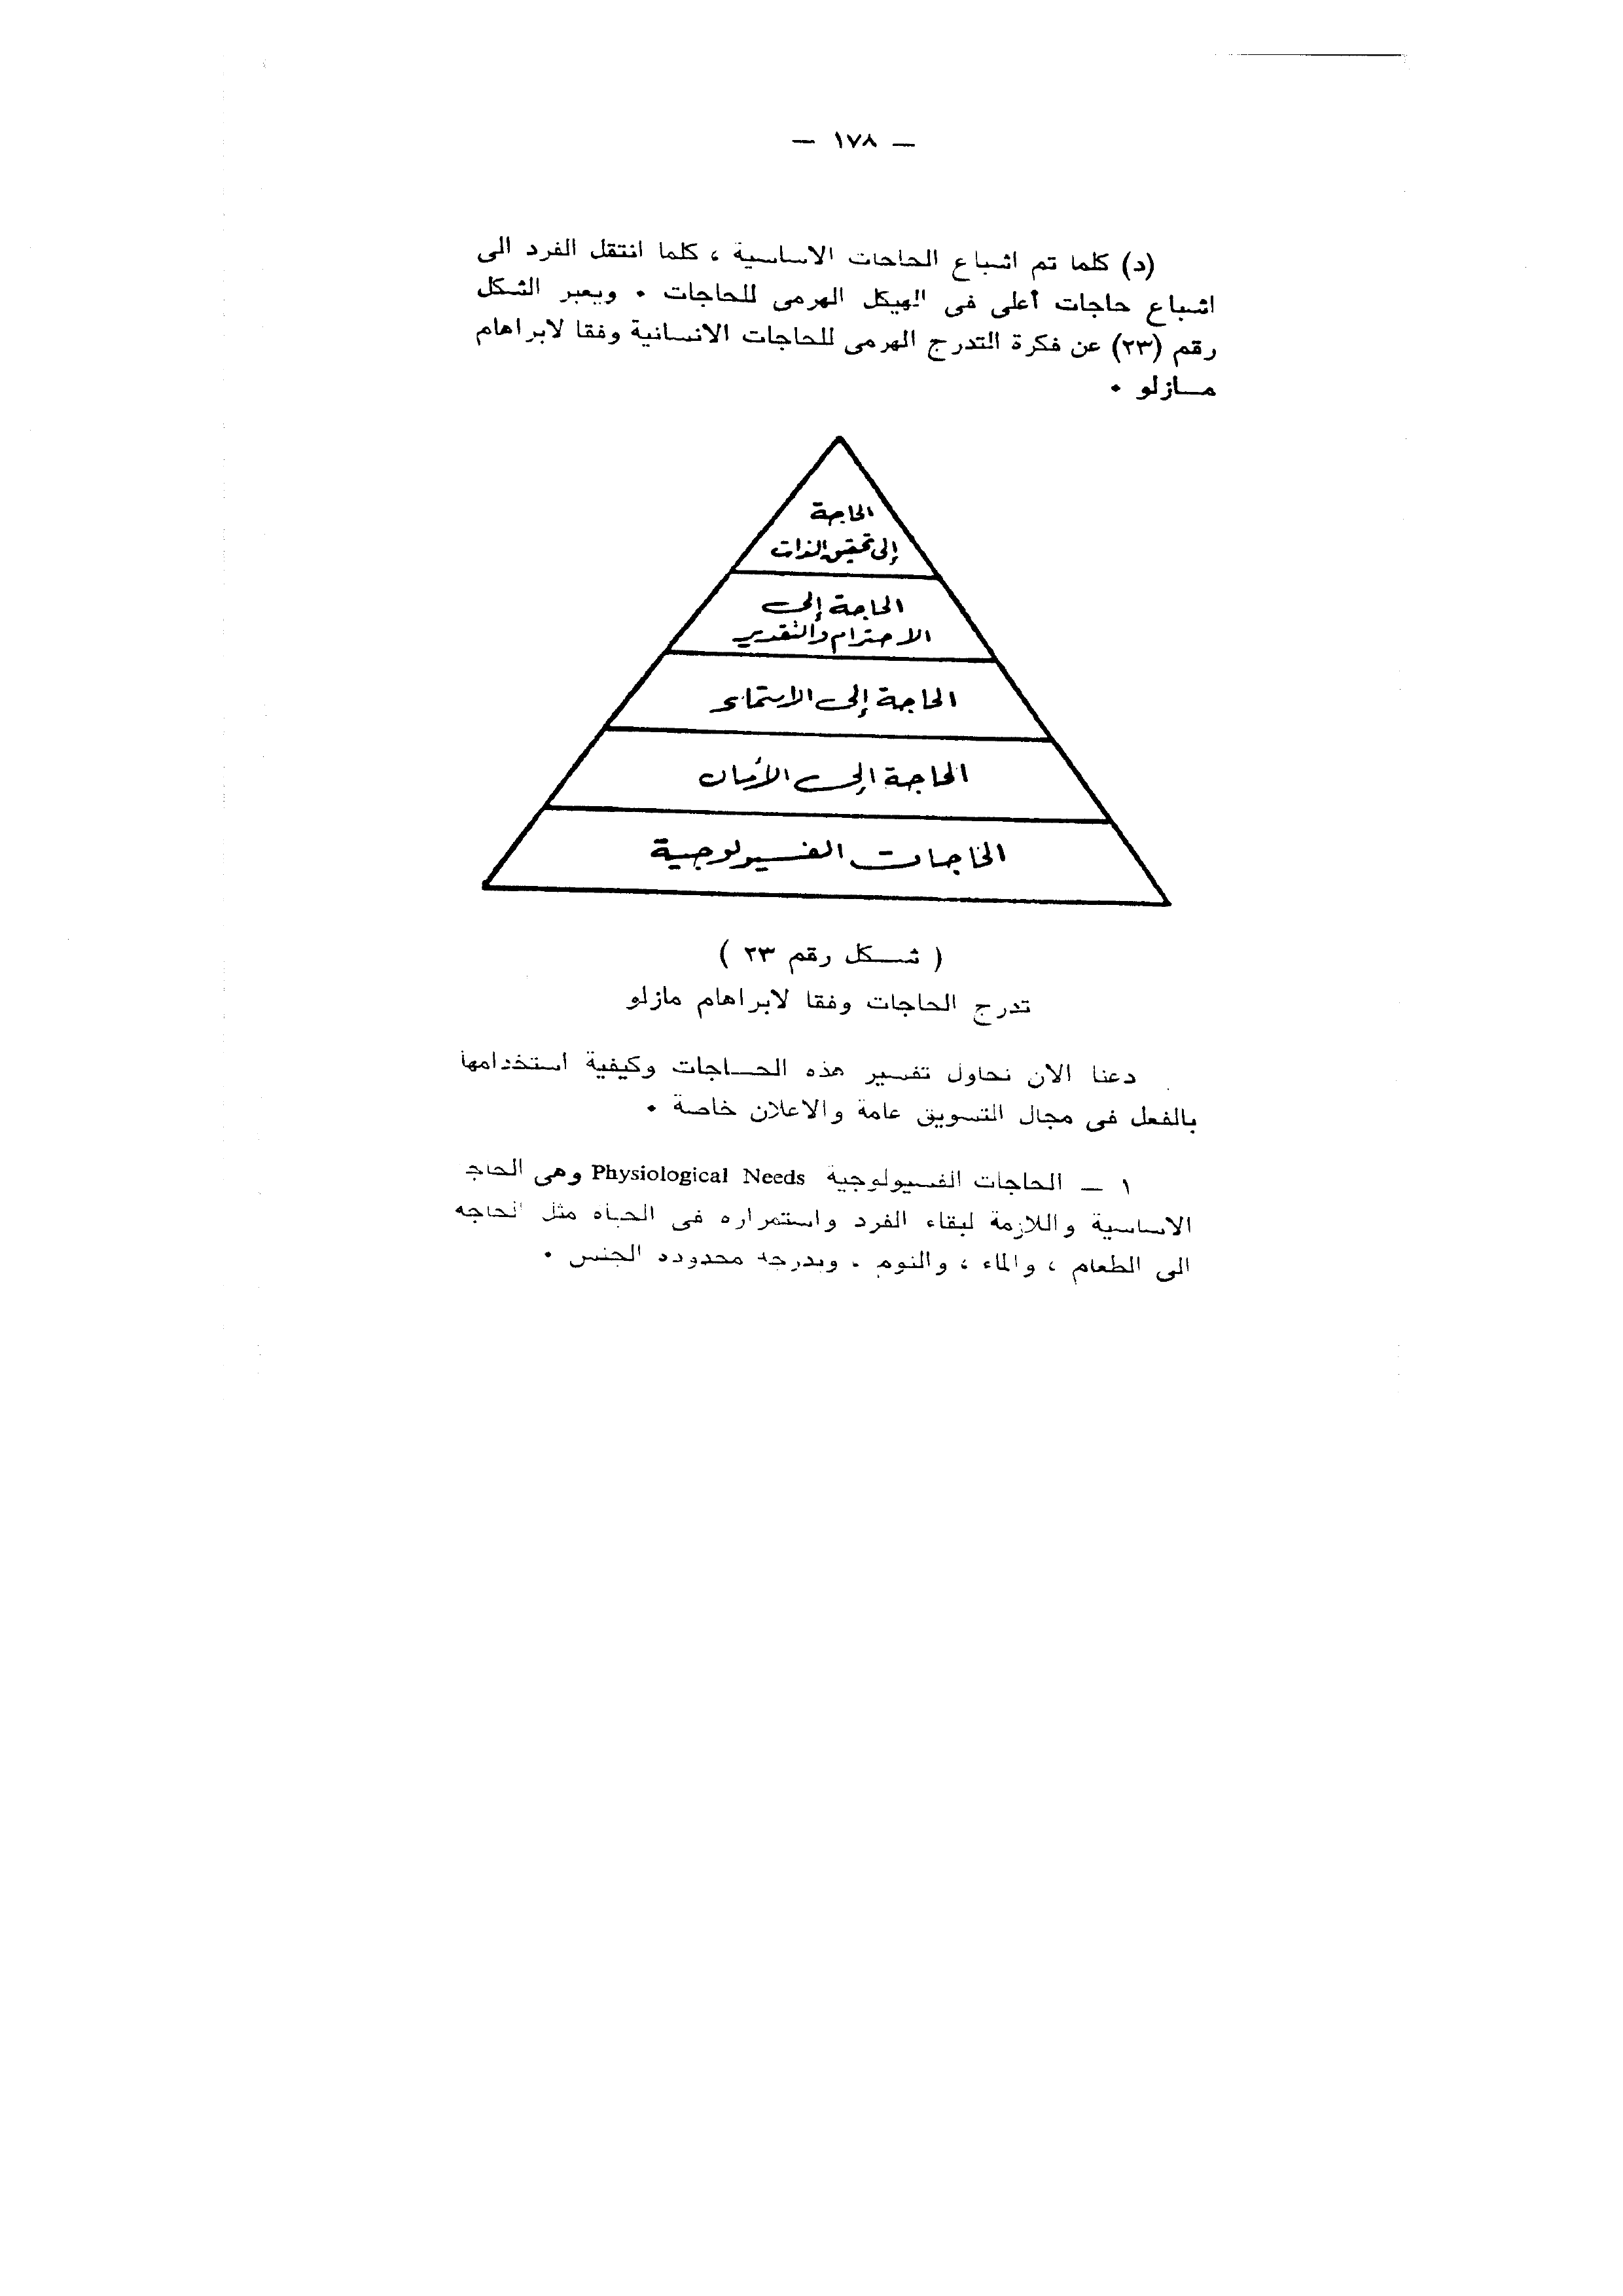 — ١٧٨ —
(د) كلما تم اشباع الحاجات الاساسية ، كلما انتقل الفرد الى
اشباع حاجات أعلى فى الهيكل الهرمى للحاجات • ويعبر الشكل
رقم (٢٣) عن فكرة التدرج الهرمى للحاجات الانسانية وفقا لابراهام
مـــازلو •
الحاجة
إلى تحقيق الذات
الحاجة إلى
الاحترام والتقدير
الحاجة إلى الانتماء
الحاجة إلى الأمان
الحاجات الفسيولوجية
( شـــكل رقم ٢٣ )
تدرج الحاجات وفقا لابراهام مازلو
دعنا الان نحاول تفسير هذه الحـــاجات وكيفية استخدامها
بالفعل فى مجال التسويق عامة والاعلان خاصة •
١ — الحاجات الفسيولوجية Physiological Needs وهى الحاج
الاساسية واللازمة لبقاء الفرد واستمراره فى الحياه مثل الحاجه
الى الطعام ، والماء ، والنوم . وبدرجه محدوده الجنس •